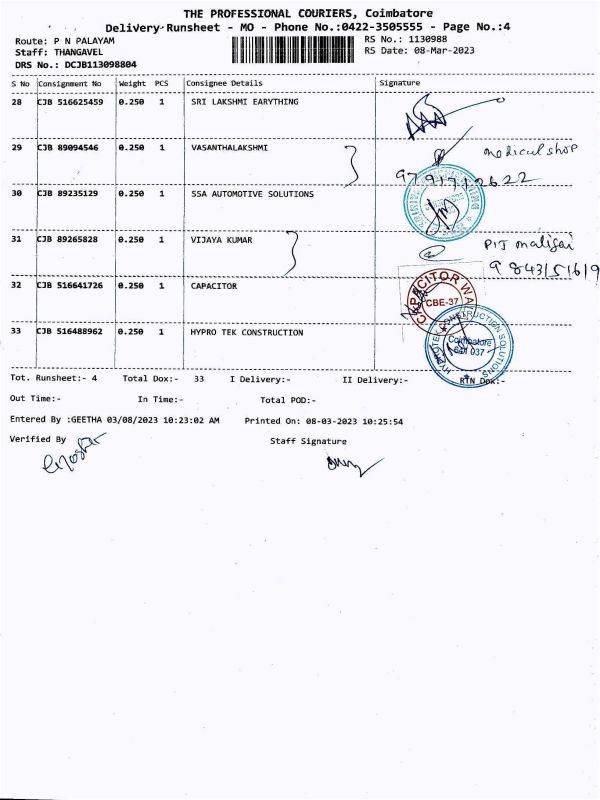 THE PROFESSIONAL COURIERS, Coimbatore
Delivery Runsheet - MO - Phone No.:0422-3505555 - Page No.:4
Route: P N PALAYAM
RS No.: 1130988
Staff: THANGAVEL
RS Date: 08-Mar-2023
DRS No.: DCJB113098804
S No Consignment No Weight PCS Consignee Details Signature
28 CJB 516625459 0.250 1 SRI LAKSHMI EARYTHING
29 CJB 89094546 0.250 1 VASANTHALAKSHMI
medical shop
30 CJB 89235129 0.250 1 SSA AUTOMOTIVE SOLUTIONS
31 CJB 89265828 0.250 1 VIJAYA KUMAR
32 CJB 516641726 0.250 1 CAPACITOR
CAPACITOR
CBE-37
33 CJB 516488962 0.250 1 HYPRO TEK CONSTRUCTION
HYPRO TEK CONSTRUCTION SOLUTIONS
Coimbatore
641 037
Tot. Runsheet:- 4 Total Dox:- 33 I Delivery:- II Delivery:- RTN Dox:-
Out Time:- In Time:- Total POD:-
Entered By :GEETHA 03/08/2023 10:23:02 AM Printed On: 08-03-2023 10:25:54
Verified By Staff Signature